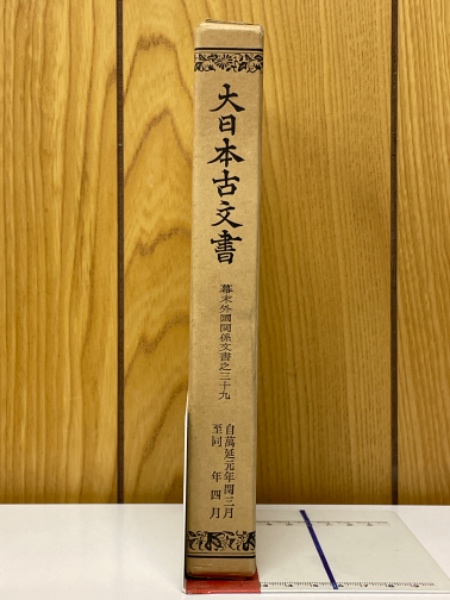 大日本古文書
幕末外國関係文書之三十九
自萬延元年閏三月
至同年四月